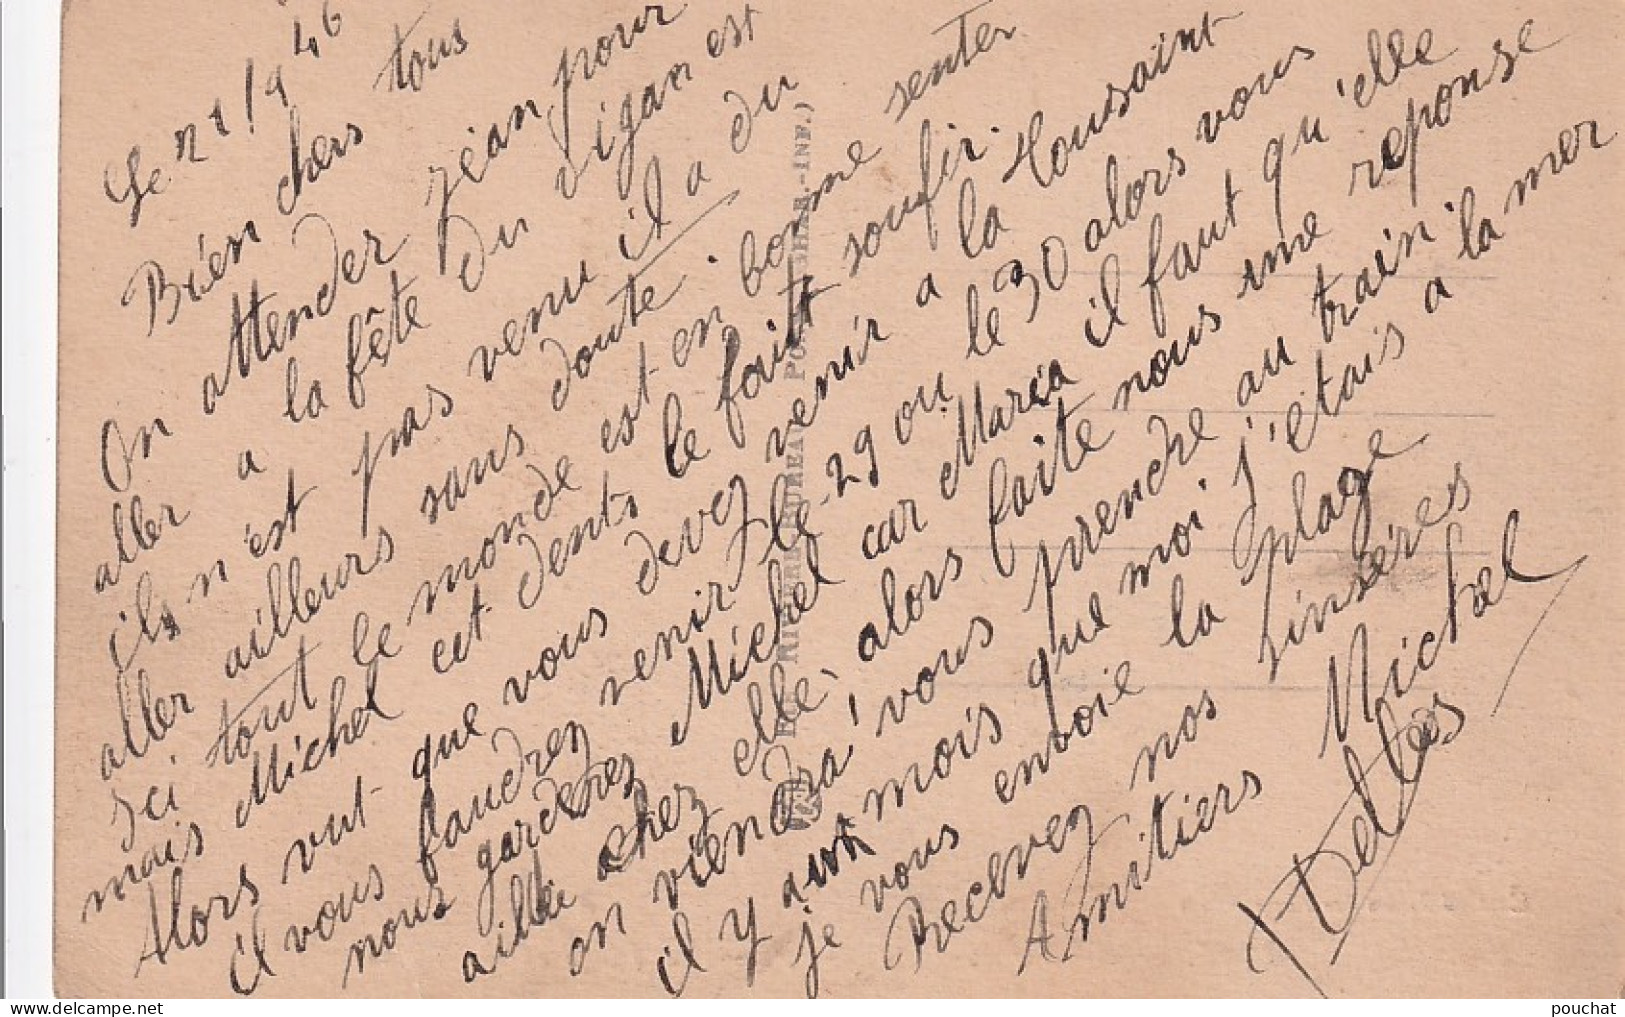 Le 21/9 46
Bien chers tous
On attender jean pour
aller a la fête du Vigan est
ils n'est pas venu il a du
aller ailleurs sans doute.
ici tout le monde est en bonne senter
mais Michel cet dents le fait soufir.
Alors vut que vous devez venir a la Tousaint
il vous faudrez venir le 29 ou le 30 alors vous
nous garderez Michel car Maria il faut qu'elle
aille chez elle alors faite nous une reponse
on viendra vous prendre au train.
il y a un mois que moi j'étais a la mer
je vous envoie la plage
Recevez nos sinsères
Amitiers Michel
Delles
RIVIERE-BUREAU PONS (CHAR.-INF.)
pouchat